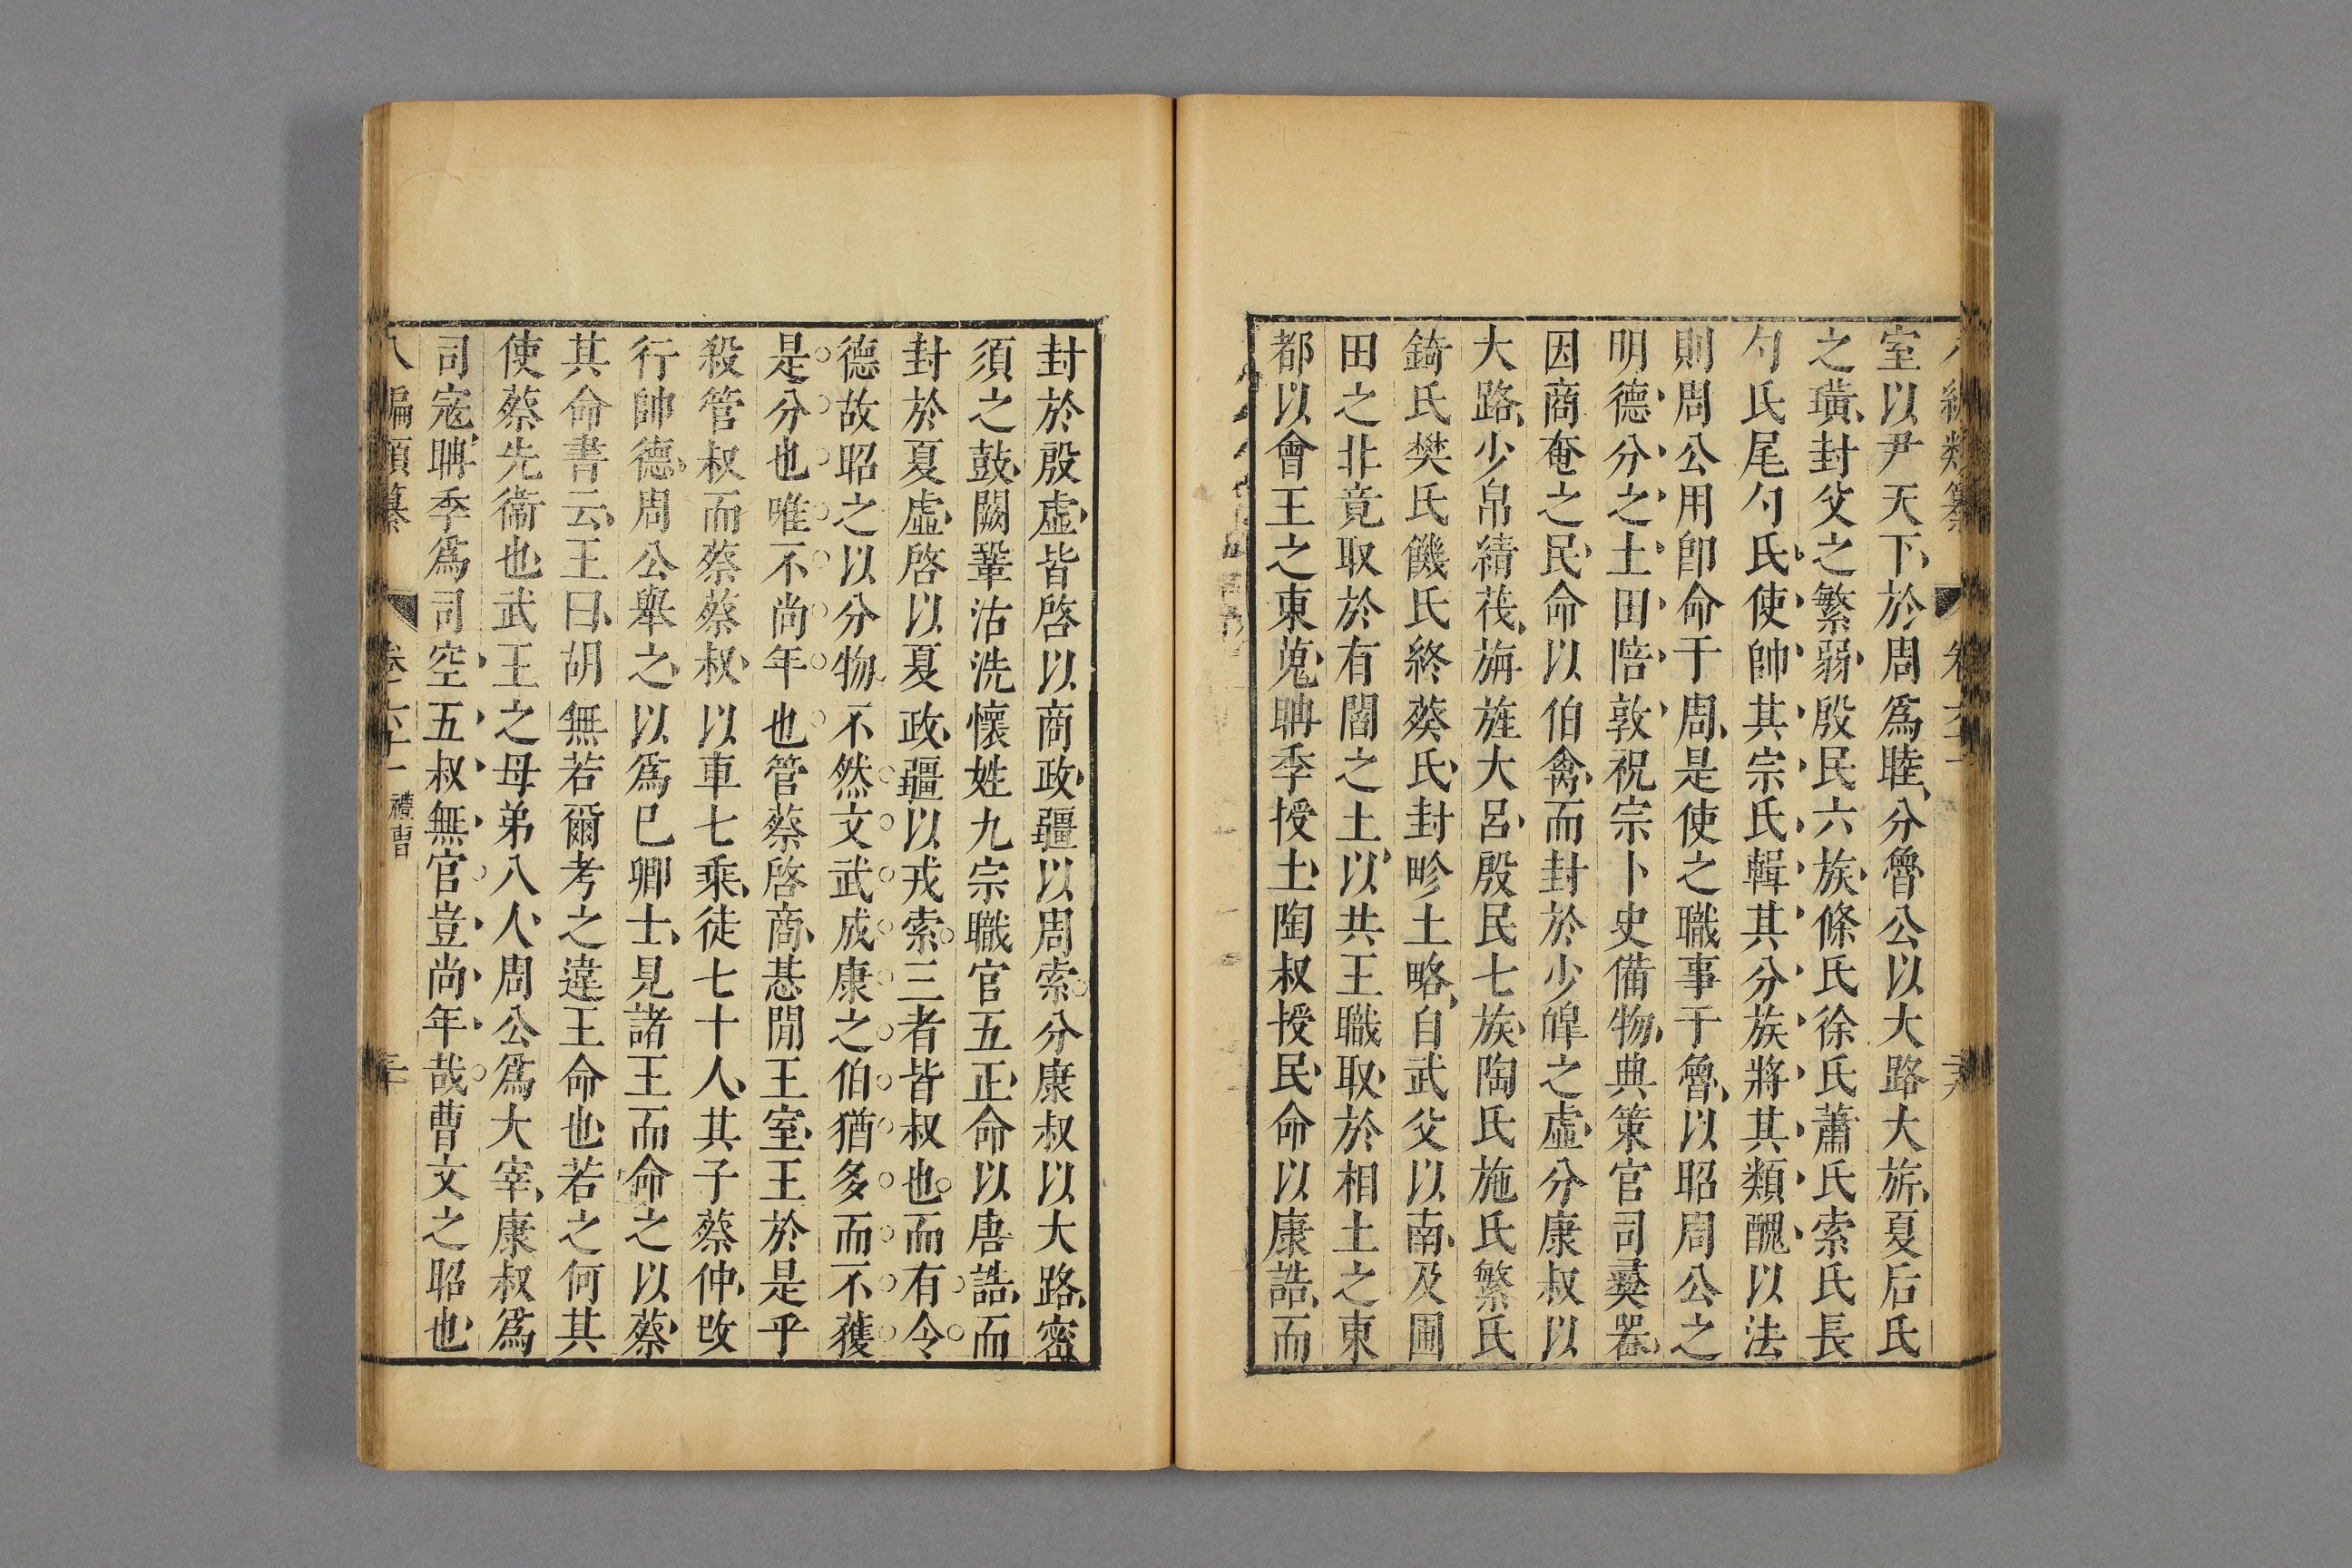 室以尹天下於周爲睦分魯公以大路大旂夏后氏
之璜封父之繁弱殷民六族條氏徐氏蕭氏索氏長
勺氏尾勺氏使帥其宗氏輯其分族將其類醜以法
則周公用卽命于周是使之職事于魯以昭周公之
明德分之土田陪敦祝宗卜史備物典策官司彞器
因商奄之民命以伯禽而封於少皥之虛分康叔以
大路少帛綪茷旃旌大呂殷民七族陶氏施氏繁氏
錡氏樊氏饑氏終葵氏封畛土略自武父以南及圃
田之北竟取於有閻之土以共王職取於相土之東
都以會王之東蒐聃季授土陶叔授民命以康誥而
封於殷虛皆啓以商政疆以周索分康叔以大路密
須之鼓闕鞏沽洗懷姓九宗職官五正命以唐誥而
封於夏虛啓以夏政疆以戎索三者皆叔也而有令
德故昭之以分物不然文武成康之伯猶多而不獲
是分也唯不尚年也管蔡啓商惎閒王室王於是乎
殺管叔而蔡蔡叔以車七乘徒七十人其子蔡仲改
行帥德周公舉之以爲已卿士見諸王而命之以蔡
其命書云王曰胡無若爾考之違王命也若之何其
使蔡先衞也武王之母弟八人周公爲大宰康叔爲
司寇聃季爲司空五叔無官豈尚年哉曹文之昭也
八編類纂 卷六十一 禮曹